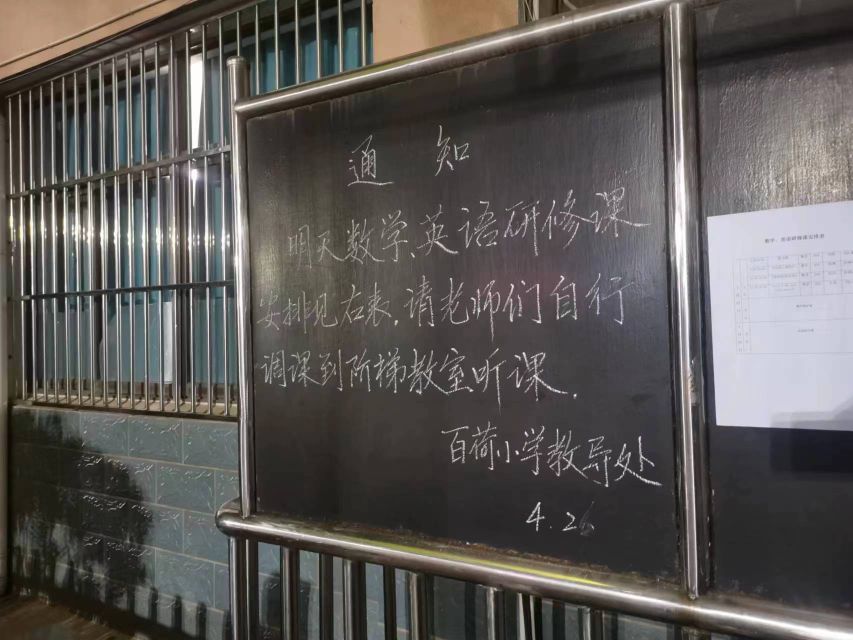 通知
明天数学、英语研修课
安排见右表,请老师们自行
调课到阶梯教室听课.
百荷小学教导处
4.26